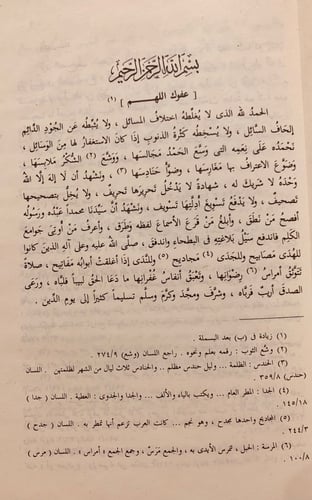 بسم الله الرحمن الرحيم
[ عفوك اللهــم ] (١)
الحمدُ لله الذى لا يُغلِّطهُ اختلافُ المسائل ، ولا يُثبِّطه عن الجُودِ الدَّائمِ
إلحافُ السَّائل ، ولا يُسْخِطُه كَثرةُ الذنوبِ إذَا كانَ الاستغفارُ لها مِنَ الوَسَائلِ ،
نحمدُه عَلَى نِعَمِه التى وسِعَ الحَمْدُ مَجَالسَها ، ووَشَّعَ (٢) الشُّكرُ مَلابِسَها ،
وضَوَّعَ الاعترافُ بها مَغارِسَها ، وضوَّأ حَنَادِسَها (٣) ، ونَشْهدُ أن لا إلهَ إلَّا اللهُ
وَحْدَهُ لا شريكَ له ، شَهادةً لا يَدْخُلُ تَحْرِيرَها تَحريفٌ ، ولا يُخِلُّ بتصحيحِها
تَصحيفٌ ، ولا يَدْفعُ تَسويغَ أدلَّتِها تَسويفٌ ، ونَشْهَدُ أنَّ سيِّدَنا محمداً عبدُه ورَسُولُه
أفصحُ مَنْ نطَق ، وأبلغُ مَنْ قَرَعَ الأسماعَ لفظُه وَطَرَق ، وأعرفُ مَنْ أُوتِىَ جَوامعَ
الكَلِمِ فاندفع سَيْلُ بَلاغتِه فى البطحاءِ واندفق ، صلَّى الله عليه وعلى آلهِ الذينَ كانوا
للهُدَى مَصَابيح وللجَدَى (٤) مَجاديح (٥) وللنَّدى إذَا أُغلقتْ أبوابُه مَفَاتيح ، صَلاةً
تَتَوَثَّقُ أمراسُ (٦) رِضْوانِها ، وتَعْبَقُ أنفاسُ غُفْرانِها مَا دَعَا الحَقُّ لبيباً فلبَّاه ، ورَعَى
الصدقَ أريبٌ فَرَبَّاه ، وشَرَّفَ ومجَّد وكرَّم وسلَّم تسليماً كثيراً إلى يومِ الدِّين .
(١) زيادة فى (ب) بعد البسملة .
(٢) وشَّع الثوب : رقمه بعلم ونحوه . راجع اللسان (وشع) ٢٧٤/٩ .
(٣) الحندس : الظلمة ... وليل حندس مظلم .. والحنادس ثلاث ليال من الشهر لظلمتهن . اللسان
(حندس) ٣٥٩/٨ .
(٤) الجدا : المطر العام ... ويكتب بالياء والألف.... والجدا والجدوى : العطية . اللسان ( جدا )
١٤٥/١٨ .
(٥) المجاديح واحدها مجدح ، وهو نجم .... كانت العرب تزعم أنها تمطر به . اللسان ( جدح )
٢٤٤/٣ .
(٦) المرسة : الحبل ، لتمرس الأيدى به ، والجمع مَرَسٌ ، وجمع الجمع « أمراس » . اللسان ( مرس )
١٠٠/٨ .